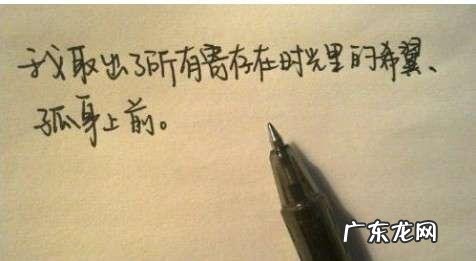 我取出了所有寄存在时光里的希翼、
孤身上前。
广东龙网